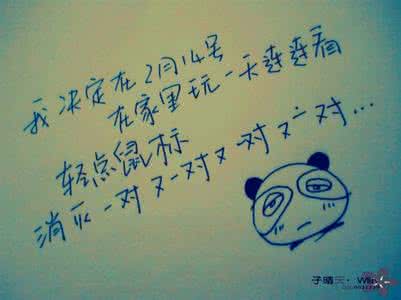 我决定在2月14号
在家里玩一天连连看
轻点鼠标
消灭一对又一对又一对又一对…
子晴天·